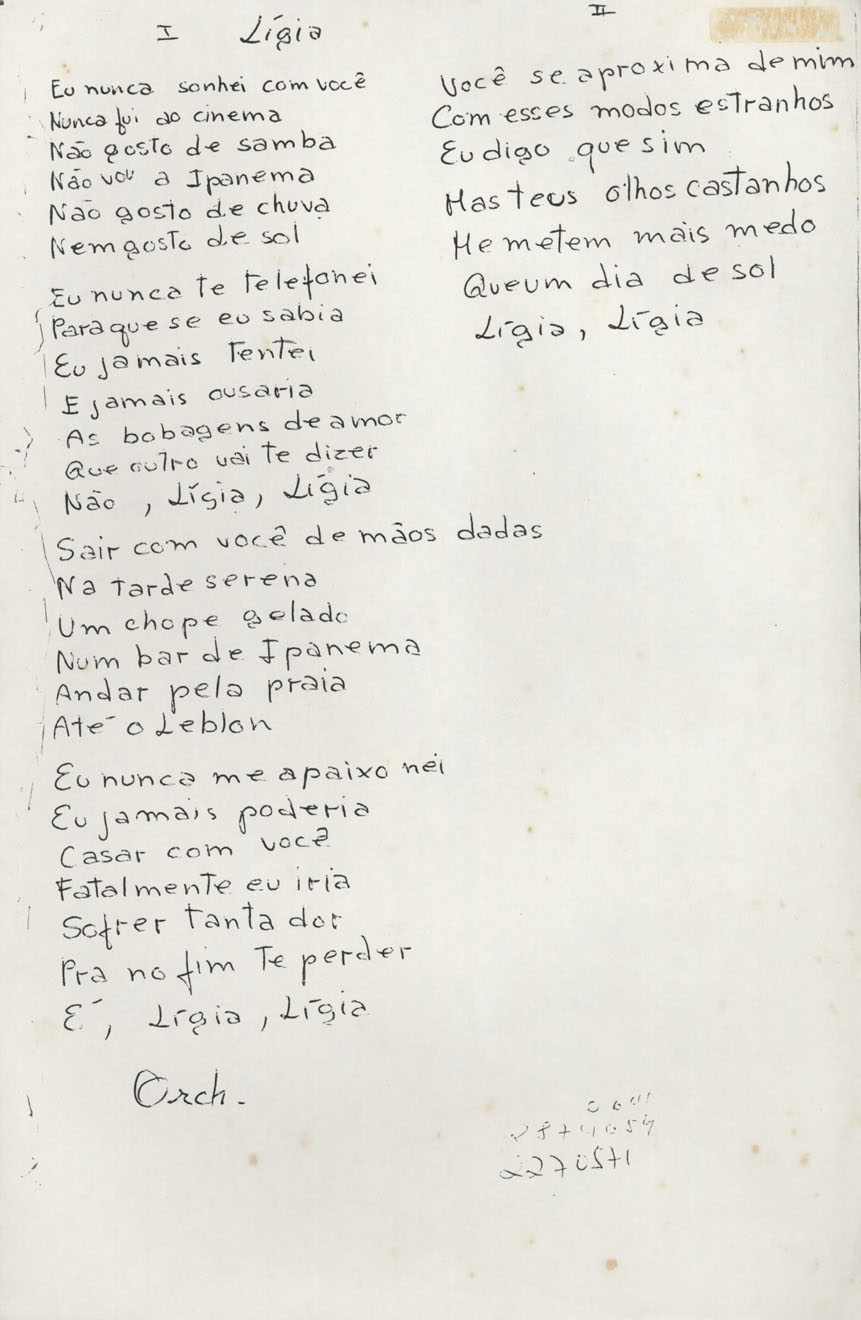 I Lígia
Eu nunca sonhei com você
Nunca fui ao cinema
Não gosto de samba
Não vou a Ipanema
Não gosto de chuva
Nem gosto de sol
Eu nunca te telefonei
Para que se eu sabia
Eu jamais tentei
E jamais ousaria
As bobagens de amor
Que outro vai te dizer
Não, Lígia, Lígia
Sair com você de mãos dadas
Na tarde serena
Um chope gelado
Num bar de Ipanema
Andar pela praia
Até o Leblon
Eu nunca me apaixonei
Eu jamais poderia
Casar com você
Fatalmente eu iria
Sofrer tanta dor
Pra no fim te perder
É, Lígia, Lígia
Orch.
II
Você se aproxima de mim
Com esses modos estranhos
Eu digo que sim
Mas teus olhos castanhos
Me metem mais medo
Que um dia de sol
Lígia, Lígia
2270571